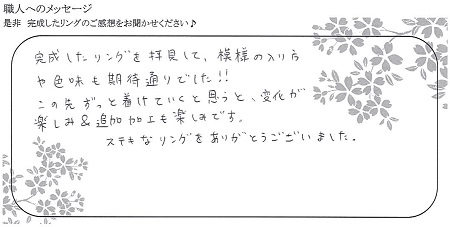 職人へのメッセージ
是非 完成したリングのご感想をお聞かせください♪
完成したリングを拝見して、模様の入り方
や色味も期待通りでした!!
この先ずっと着けていくと思うと、変化が
楽しみ&追加加工も楽しみです。
ステキなリングをありがとうございました。